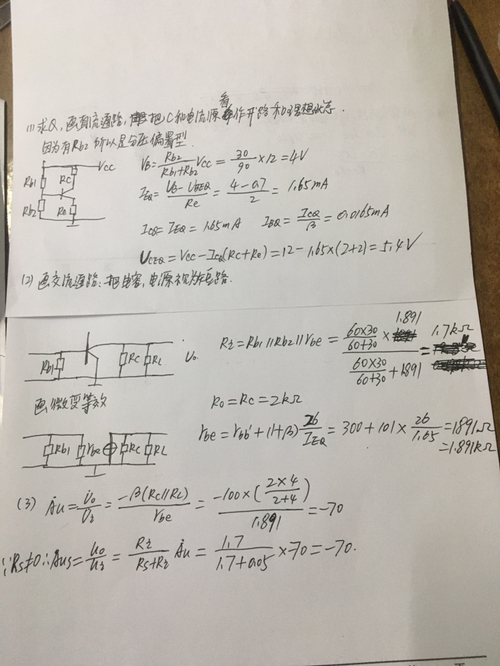 (1) 求Q,画直流通路,把C和电流源看作开路和理想状态.
因为有Rb2 所以是分压偏置型.
Rb1 Rc Vcc
Rb2 Re
VB = Rb2/(Rb1+Rb2) Vcc = 30/90 × 12 = 4V
IEQ = (UB - UBEQ)/Re = (4 - 0.7)/2 = 1.65mA
ICQ = IEQ = 1.65mA IBQ = ICQ/β = 0.0165mA
UCEQ = Vcc - ICQ(Rc+Re) = 12 - 1.65×(2+2) = 5.4V
(2) 画交流通路:把电容,电源视为短路.
Rb1 Rc RL Uo
Ri = Rb1//Rb2//rbe = (60×30/(60+30) × 1.891)/(60×30/(60+30) + 1.891) = 1.7kΩ
画微变等效
Ro = Rc = 2kΩ
Rb1 rbe Rc RL
rbe = rbb' + (1+β) 26/IEQ = 300 + 101 × 26/1.65 = 1891Ω
= 1.891kΩ
(3) Au = Uo/Ui = -β(Rc//RL)/rbe = -100×(2×4/(2+4))/1.891 = -70
∵Rs≠0 ∴Aus = uo/us = Ri/(Rs+Ri) Au = 1.7/(1.7+0.05) × -70 = -70.